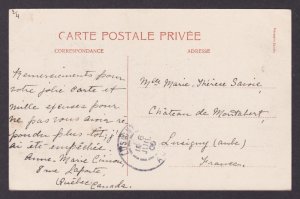 CARTE POSTALE PRIVÉE
CORRESPONDANCE
ADRESSE
Remerciements pour
votre jolie carte et
mille excuses pour
ne pas vous avoir ré
pondre plus tôt, j'
ai été empêchée.
Anne. Marie
8 rue Laporte,
Québec
Canada.
Mlle Marie-Thérèse Savoie
Château de Montabert,
Lusigny (aube)
France.